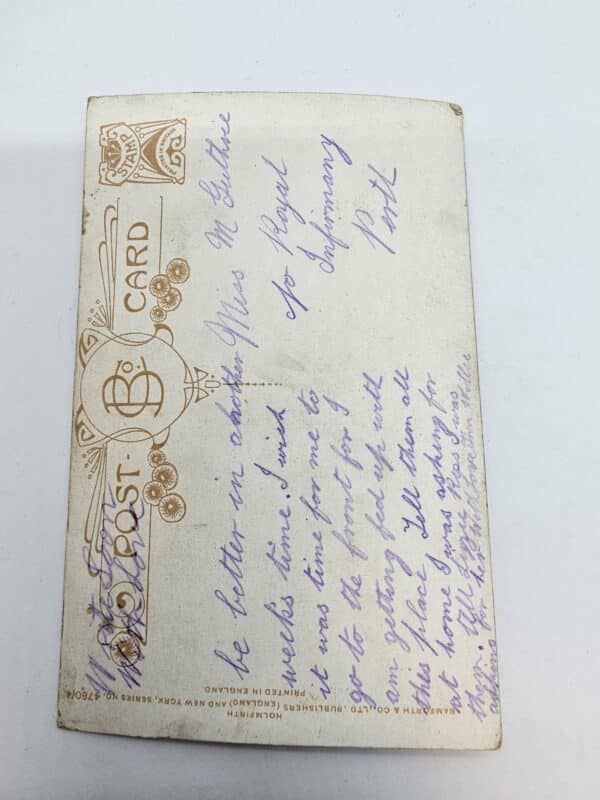 POST CARD
STAMP
Write Soon
With Love
be better in another
weeks time. I wish
it was time for me to
go to the front for I
am getting fed up with
this place Tell them all
at home I was asking for
them. Tell I was
asking for her with love from
Miss M Guthrie
c/o Royal
Infirmary
Perth
HOLMFIRTH
BAMFORTH & CO., LTD., PUBLISHERS (ENGLAND) AND NEW YORK, SERIES NO. 4780/4
PRINTED IN ENGLAND